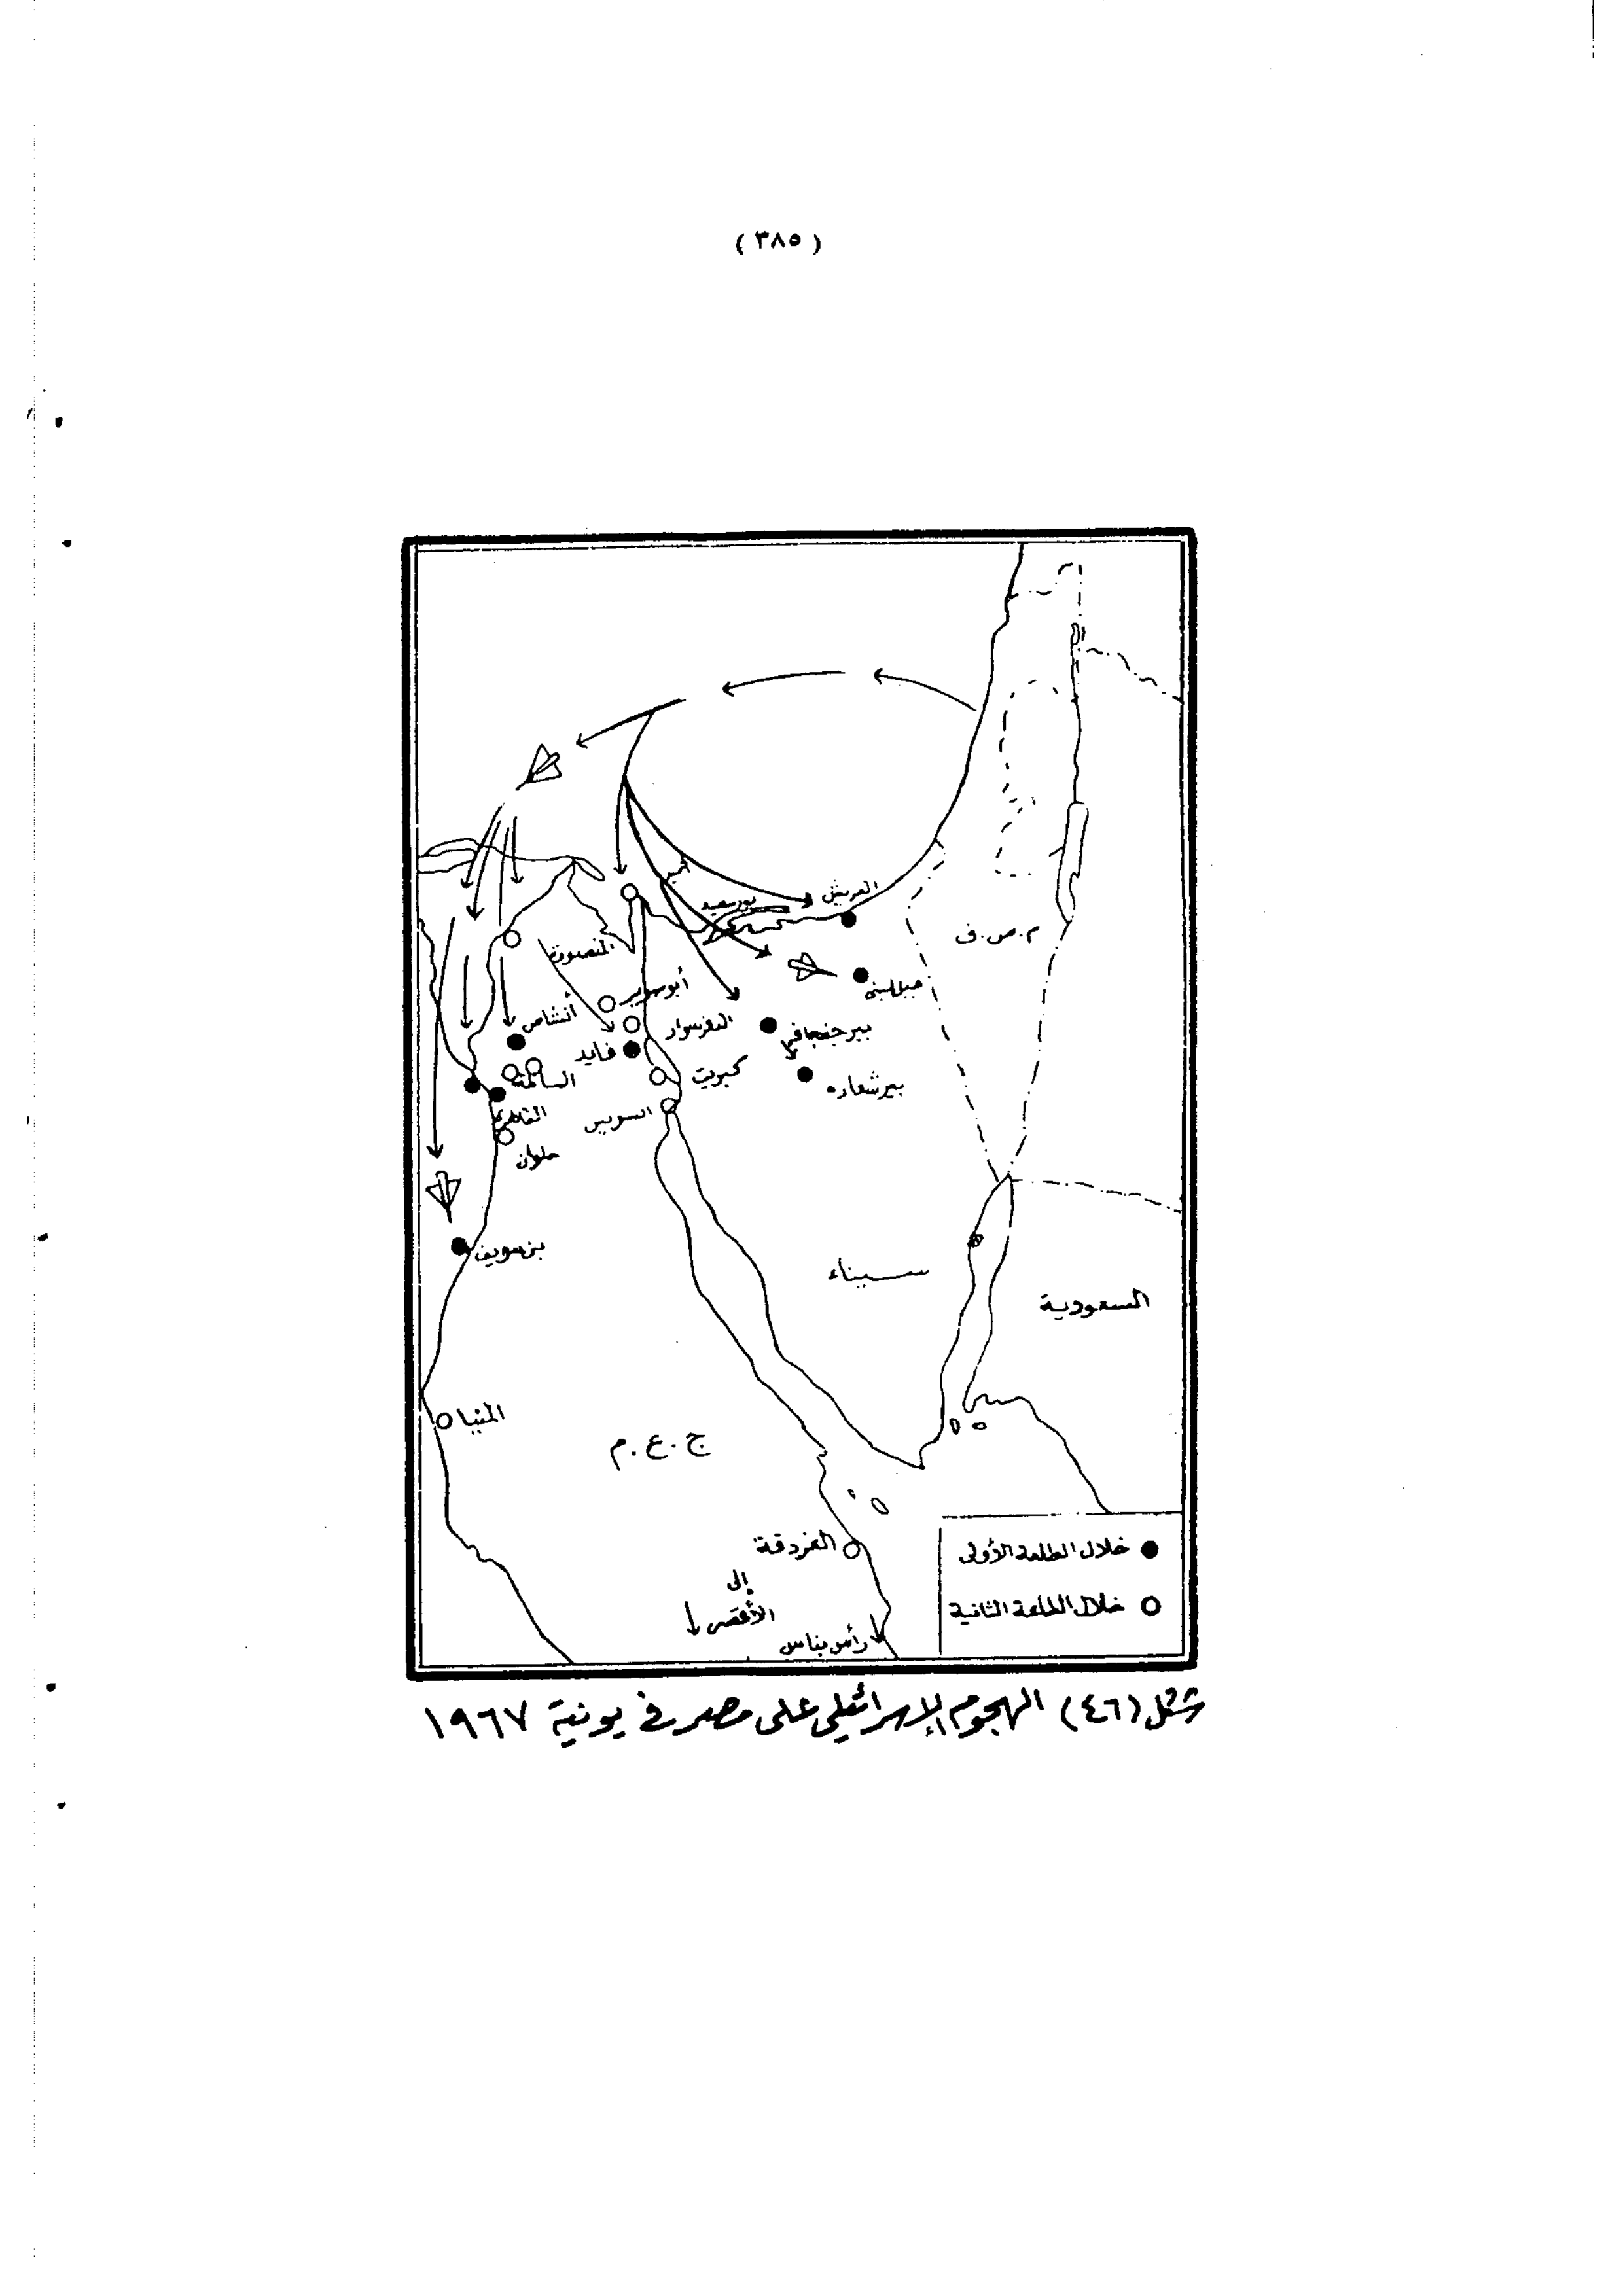 ( ٣٨٥ )
العريش
بورسعيد
م . ص . ف
المنصورة
جبل لبنى
أبو صوير
أنشاص
الدفرسوار
بير جفجافة
فايد
كبريت
بير شعاره
السويس
القاهرة
حلوان
بنى سويف
سيناء
السعودية
المنيا
ج . ع . م
الغردقة
إلى
الأقصر
رأس بناس
خلال الطلعة الأولى
خلال الطلعة الثانية
شكل (٤٦) الهجوم الإسرائيلى على مصر فى يونية ١٩٦٧